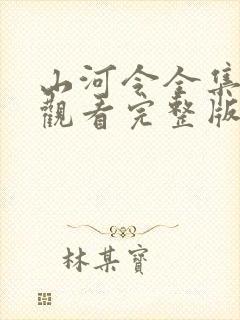 山河令全集
觀看完整版
林某寶